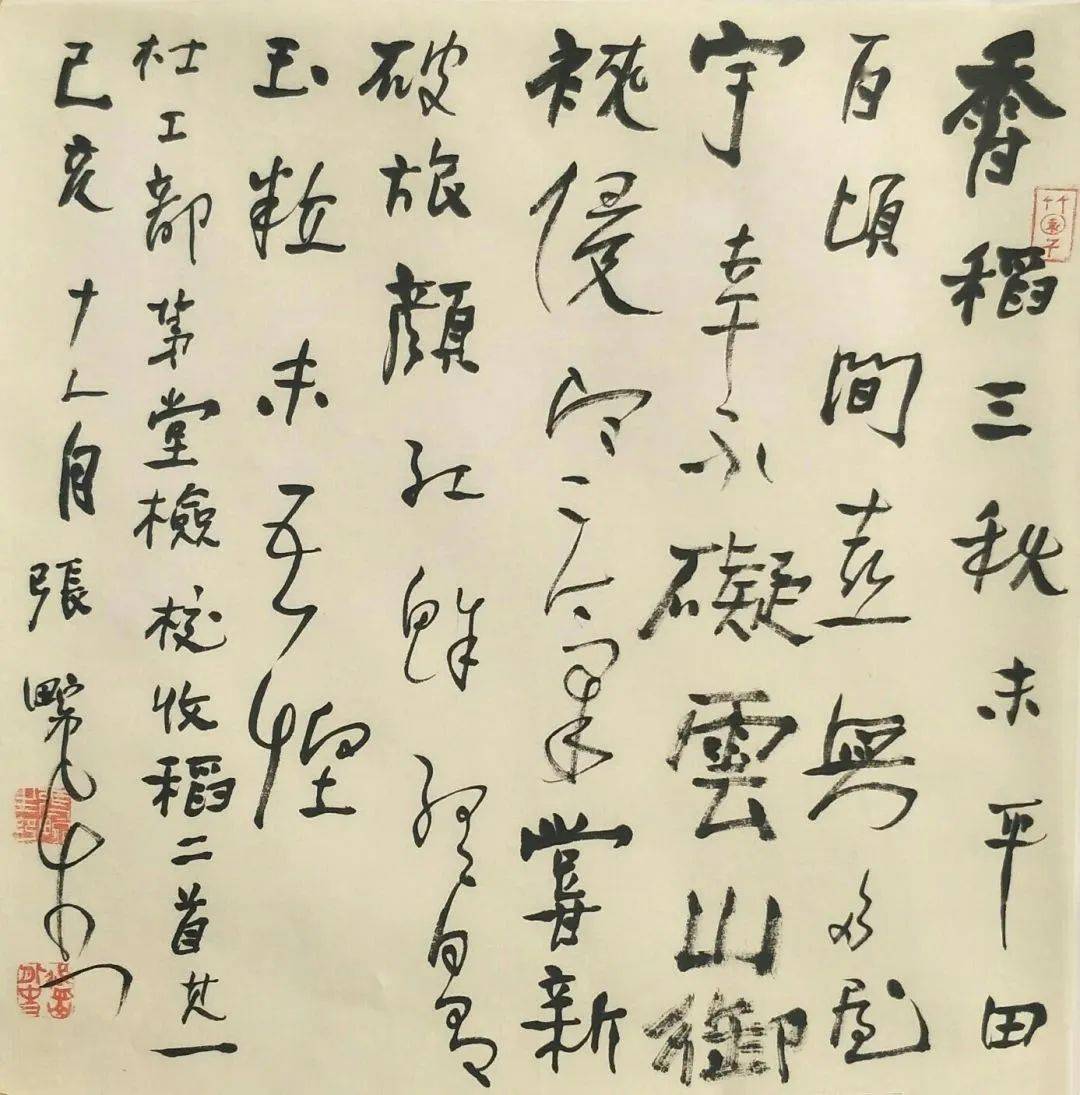 香稻三秋末平田
百頃間喜無多屋
宇幸不礙雲山御
裌侵寒氣嘗新
破旅顏紅鮮終日有
玉粒未吾慳
杜工部茅堂檢校收稻二首其一
己亥十月張